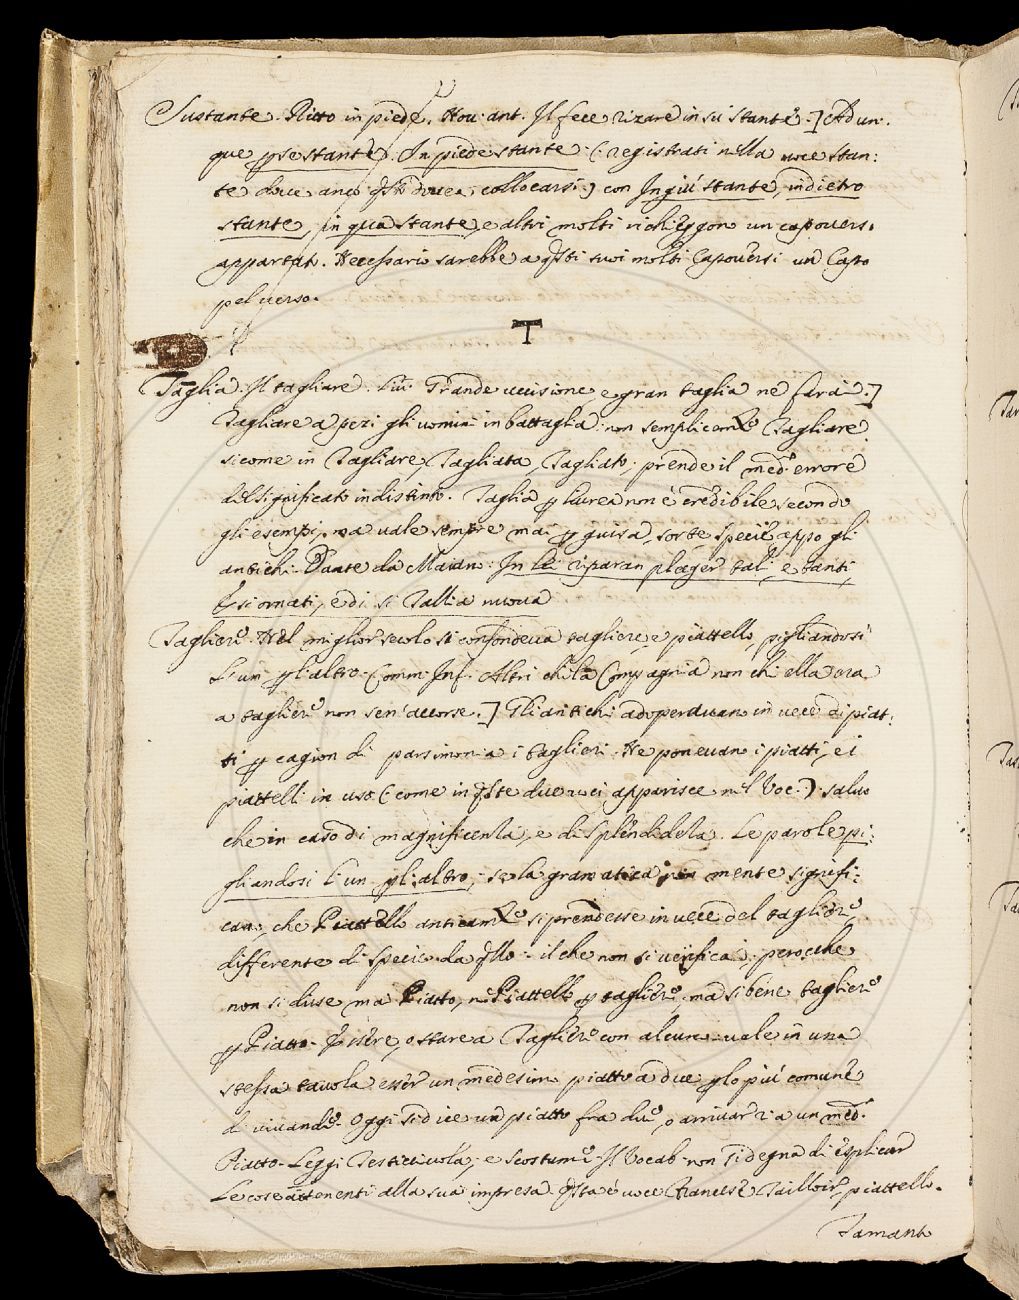 Sustante. Ritto in piede. Nov. ant. Il fece rizare in sù stante.] Adun.
que pse stante. In piede stante. (registrati nella voce Stan:
te dove anco qsto dovea collocarsi) con In giù stante, indietro
stante, in qua stante, e altri molti richieggon un capovers.
appartat. Necessario sarebbe a qsti suoi molti Capoversi un Capo
pel verso.
T
Taglia. Il tagliare. Liv. Grande uccisione, e gran taglia ne farai.]
Tagliare a pezi gli uomini in battaglia: non semplicemte Tagliare
sicome in Tagliare, Tagliata, Tagliato: prende il med. errore
del significato indistinto. Taglia p livrea non è credibile secondo
gli esempi, ma vale sempre mai p guisa, sorte, specie appo gli
antichi. Dante da Maiano. In lei riparan piager tali, e tanti,
E si ornati, e di si Tallia nuova
Tagliere. Nel miglior secolo si confondeva tagliere, e piattello, pigliandosi
l'un pl'altro. Comm. Inf. Altri che la Compagnia non chi ella era
a tagliere non sen'accorse.] Gli antichi adoperavan in vece di piat:
ti p cagion di parsimonia i taglieri. Ne ponevano i piatti, e i
piattelli in uso (come in qste due voci apparisce nel Voc.) salvo
che in caso di magnificenza, e di splendideza. Le parole pi:
gliandosi l'un pl'altro, se la gramatica non mente signifi:
can, che Piattello anticamte si prendesse in vece del tagliere,
differente di specie da qllo: il che non si verifica: perocche
non si disse mai Piatto, nè Piattello p tagliere, ma si bene tagliere
p Piatto. Essere, o stare a Tagliere con alcuno vale in una
stessa tavola esser un medesimo piatto a due plo più comune
di vivande. Oggi si dice un piatto fra due, o arrivar 2 a un med.
Piatto. Leggi Testicciuola, e Scostume. Il Vocab. non si degna di esplicar
le cose attenenti alla sua impresa. Qsta è voce Francese Tailloir, piattello.
Tamanto